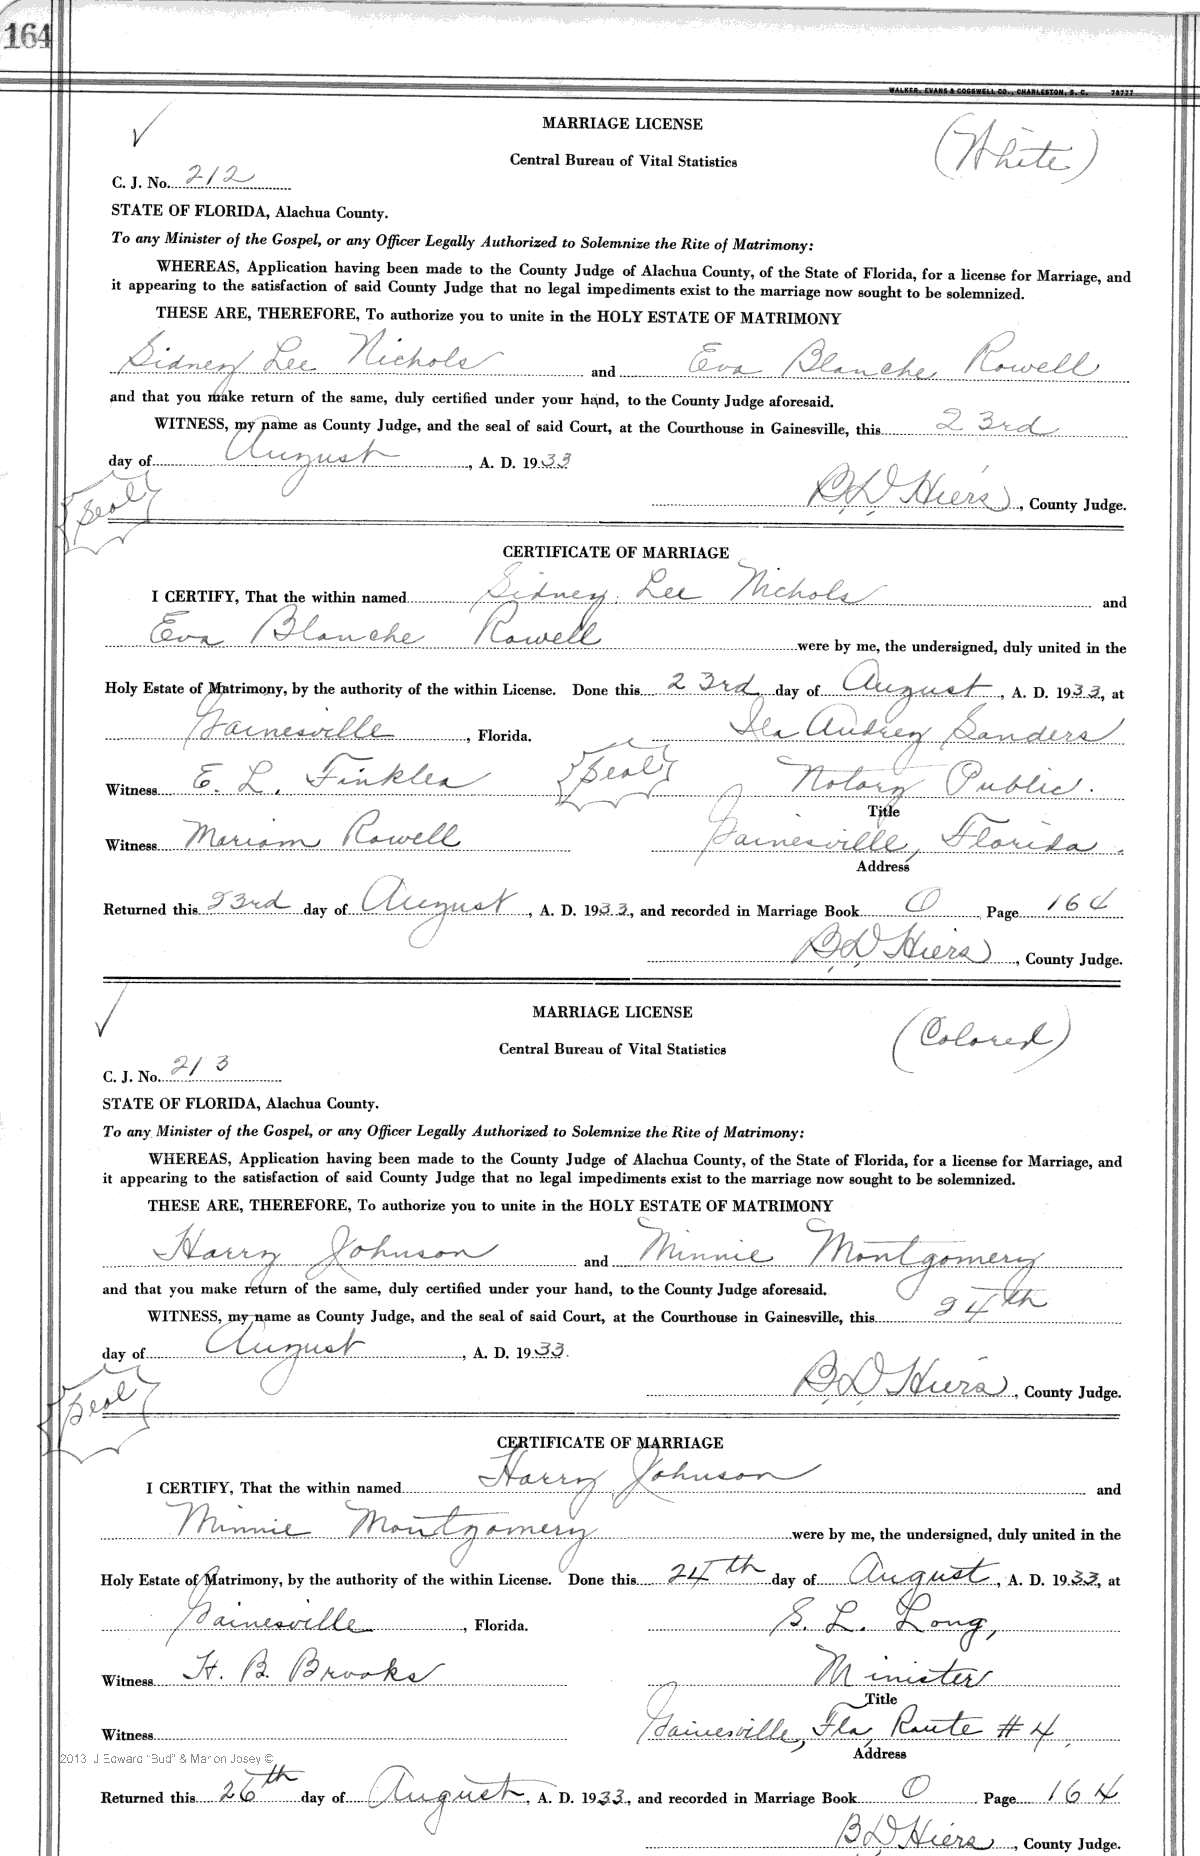 164
WALKER, EVANS & COGSWELL CO., CHARLESTON, S. C. 78777
MARRIAGE LICENSE
(White)
Central Bureau of Vital Statistics
C. J. No. 212
STATE OF FLORIDA, Alachua County.
To any Minister of the Gospel, or any Officer Legally Authorized to Solemnize the Rite of Matrimony:
WHEREAS, Application having been made to the County Judge of Alachua County, of the State of Florida, for a license for Marriage, and
it appearing to the satisfaction of said County Judge that no legal impediments exist to the marriage now sought to be solemnized.
THESE ARE, THEREFORE, To authorize you to unite in the HOLY ESTATE OF MATRIMONY
Sidney Lee Nichols and Eva Blanche Rowell
and that you make return of the same, duly certified under your hand, to the County Judge aforesaid.
WITNESS, my name as County Judge, and the seal of said Court, at the Courthouse in Gainesville, this 23rd
day of August, A. D. 1933
(Seal) B. D. Hiers, County Judge.
CERTIFICATE OF MARRIAGE
I CERTIFY, That the within named Sidney Lee Nichols and
Eva Blanche Rowell were by me, the undersigned, duly united in the
Holy Estate of Matrimony, by the authority of the within License. Done this 23rd day of August, A. D. 1933, at
Gainesville, Florida. Ila Audrey Sanders
Witness E. L. Finklea (Seal) Notary Public.
Title
Witness Mariam Rowell Gainesville, Florida.
Address
Returned this 23rd day of August, A. D. 1933, and recorded in Marriage Book O Page 164
B. D. Hiers, County Judge.
MARRIAGE LICENSE
(Colored)
Central Bureau of Vital Statistics
C. J. No. 213
STATE OF FLORIDA, Alachua County.
To any Minister of the Gospel, or any Officer Legally Authorized to Solemnize the Rite of Matrimony:
WHEREAS, Application having been made to the County Judge of Alachua County, of the State of Florida, for a license for Marriage, and
it appearing to the satisfaction of said County Judge that no legal impediments exist to the marriage now sought to be solemnized.
THESE ARE, THEREFORE, To authorize you to unite in the HOLY ESTATE OF MATRIMONY
Harry Johnson and Minnie Montgomery
and that you make return of the same, duly certified under your hand, to the County Judge aforesaid.
WITNESS, my name as County Judge, and the seal of said Court, at the Courthouse in Gainesville, this 24th
day of August, A. D. 1933.
(Seal) B. D. Hiers, County Judge.
CERTIFICATE OF MARRIAGE
I CERTIFY, That the within named Harry Johnson and
Minnie Montgomery were by me, the undersigned, duly united in the
Holy Estate of Matrimony, by the authority of the within License. Done this 24th day of August, A. D. 1933, at
Gainesville, Florida. S. L. Long,
Witness H. B. Brooks Minister
Title
Witness Gainesville, Fla, Route #4.
Address
2013 J Edward "Bud" & Marion Josey ©
Returned this 26th day of August, A. D. 1933, and recorded in Marriage Book O Page 164
B D Hiers, County Judge.